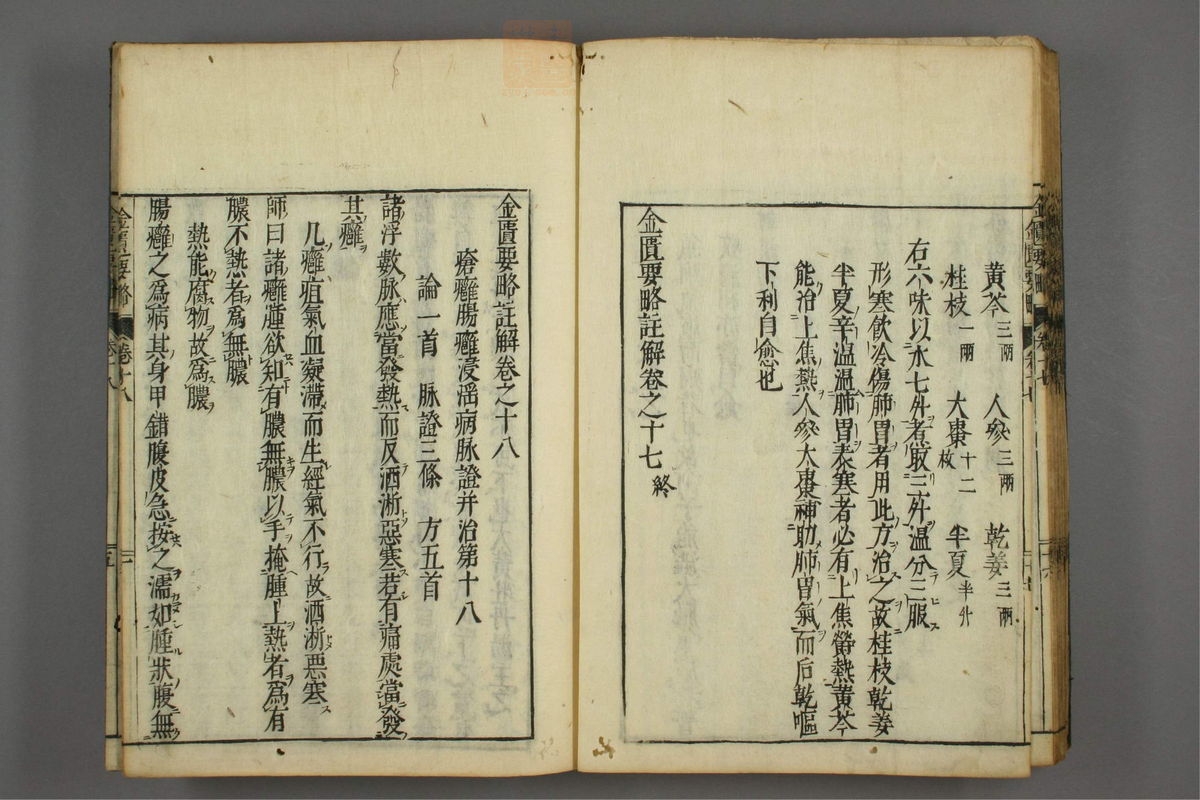 黃芩三兩 人參三兩 乾姜三兩
桂枝一兩 大棗十二枚 半夏半升
右六味以水七升煮取三升溫分三服
形寒飲冷傷肺胃者用此方治之故桂枝乾姜
半夏辛溫溫肺胃表寒者必有上焦欝熱黃芩
能治上焦熱人參大棗補助肺胃氣而后乾嘔
下利自愈也
金匱要略註解卷之十七終
金匱要略註解卷之十八
瘡癰腸癰浸滛病脉證并治第十八
論一首 脉證三條 方五首
諸浮數脉應當發熱而反洒淅惡寒若有痛處當發
其癰
凡癰疽氣血凝滯而生經氣不行故洒淅惡寒
師曰諸癰腫欲知有膿無膿以手掩腫上熱者為有
膿不熱者為無膿
熱能腐物故為膿
腸癰之為病其身甲錯腹皮急按之濡如腫狀腹無